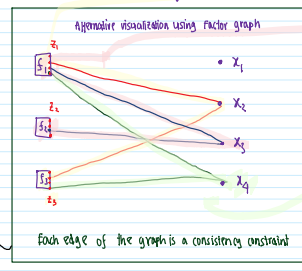 Alternative visualization using Factor graph
z₁
f₁
x₁
z₂
x₂
f₂
x₃
f₃
x₄
z₃
Each edge of the graph is a consistency constraint